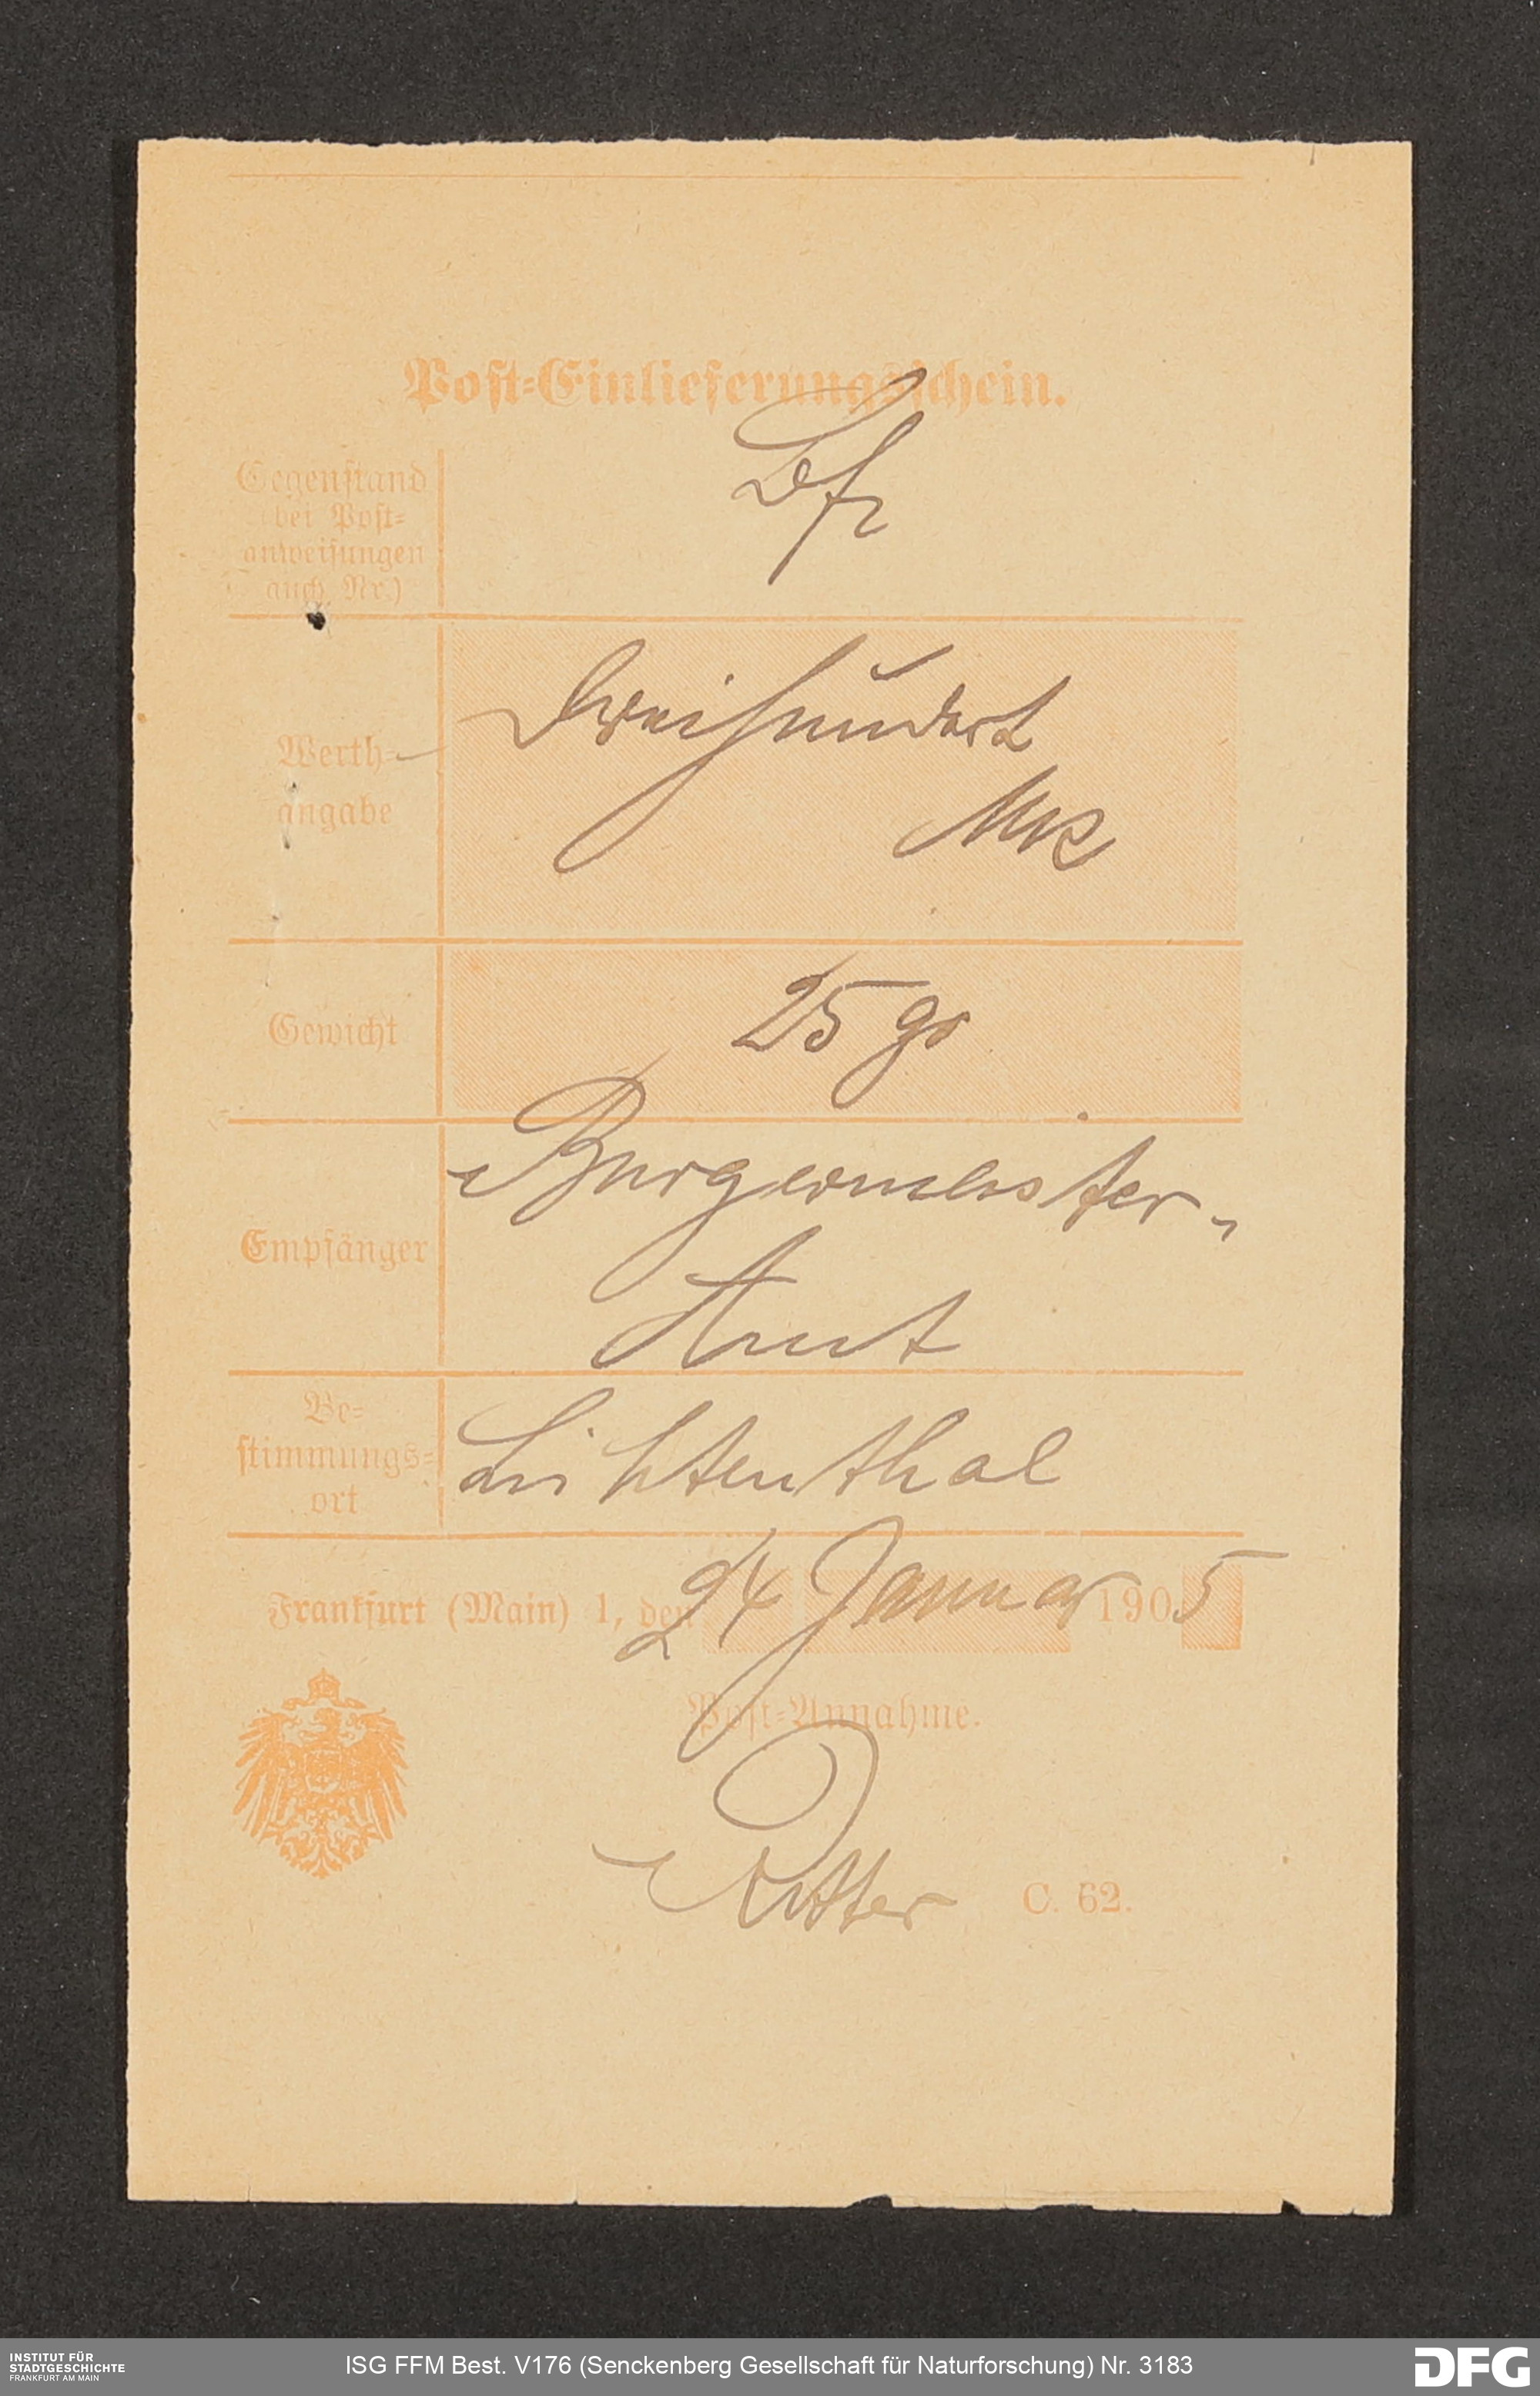 Post-Einlieferungsschein.
Gegenstand
(bei Post-
anweisungen
auch Nr.)
Bf
Werth-
angabe
Dreihundert
Mk
Gewicht
25 gr
Empfänger
Burgermeister-
Amt
Be-
stimmungs-
ort
Lichtenthal
Frankfurt (Main) 1, den 24 Januar 1905
Post-Annahme.
Ritter
C. 62.
INSTITUT FÜR
STADTGESCHICHTE
FRANKFURT AM MAIN
ISG FFM Best. V176 (Senckenberg Gesellschaft für Naturforschung) Nr. 3183
DFG